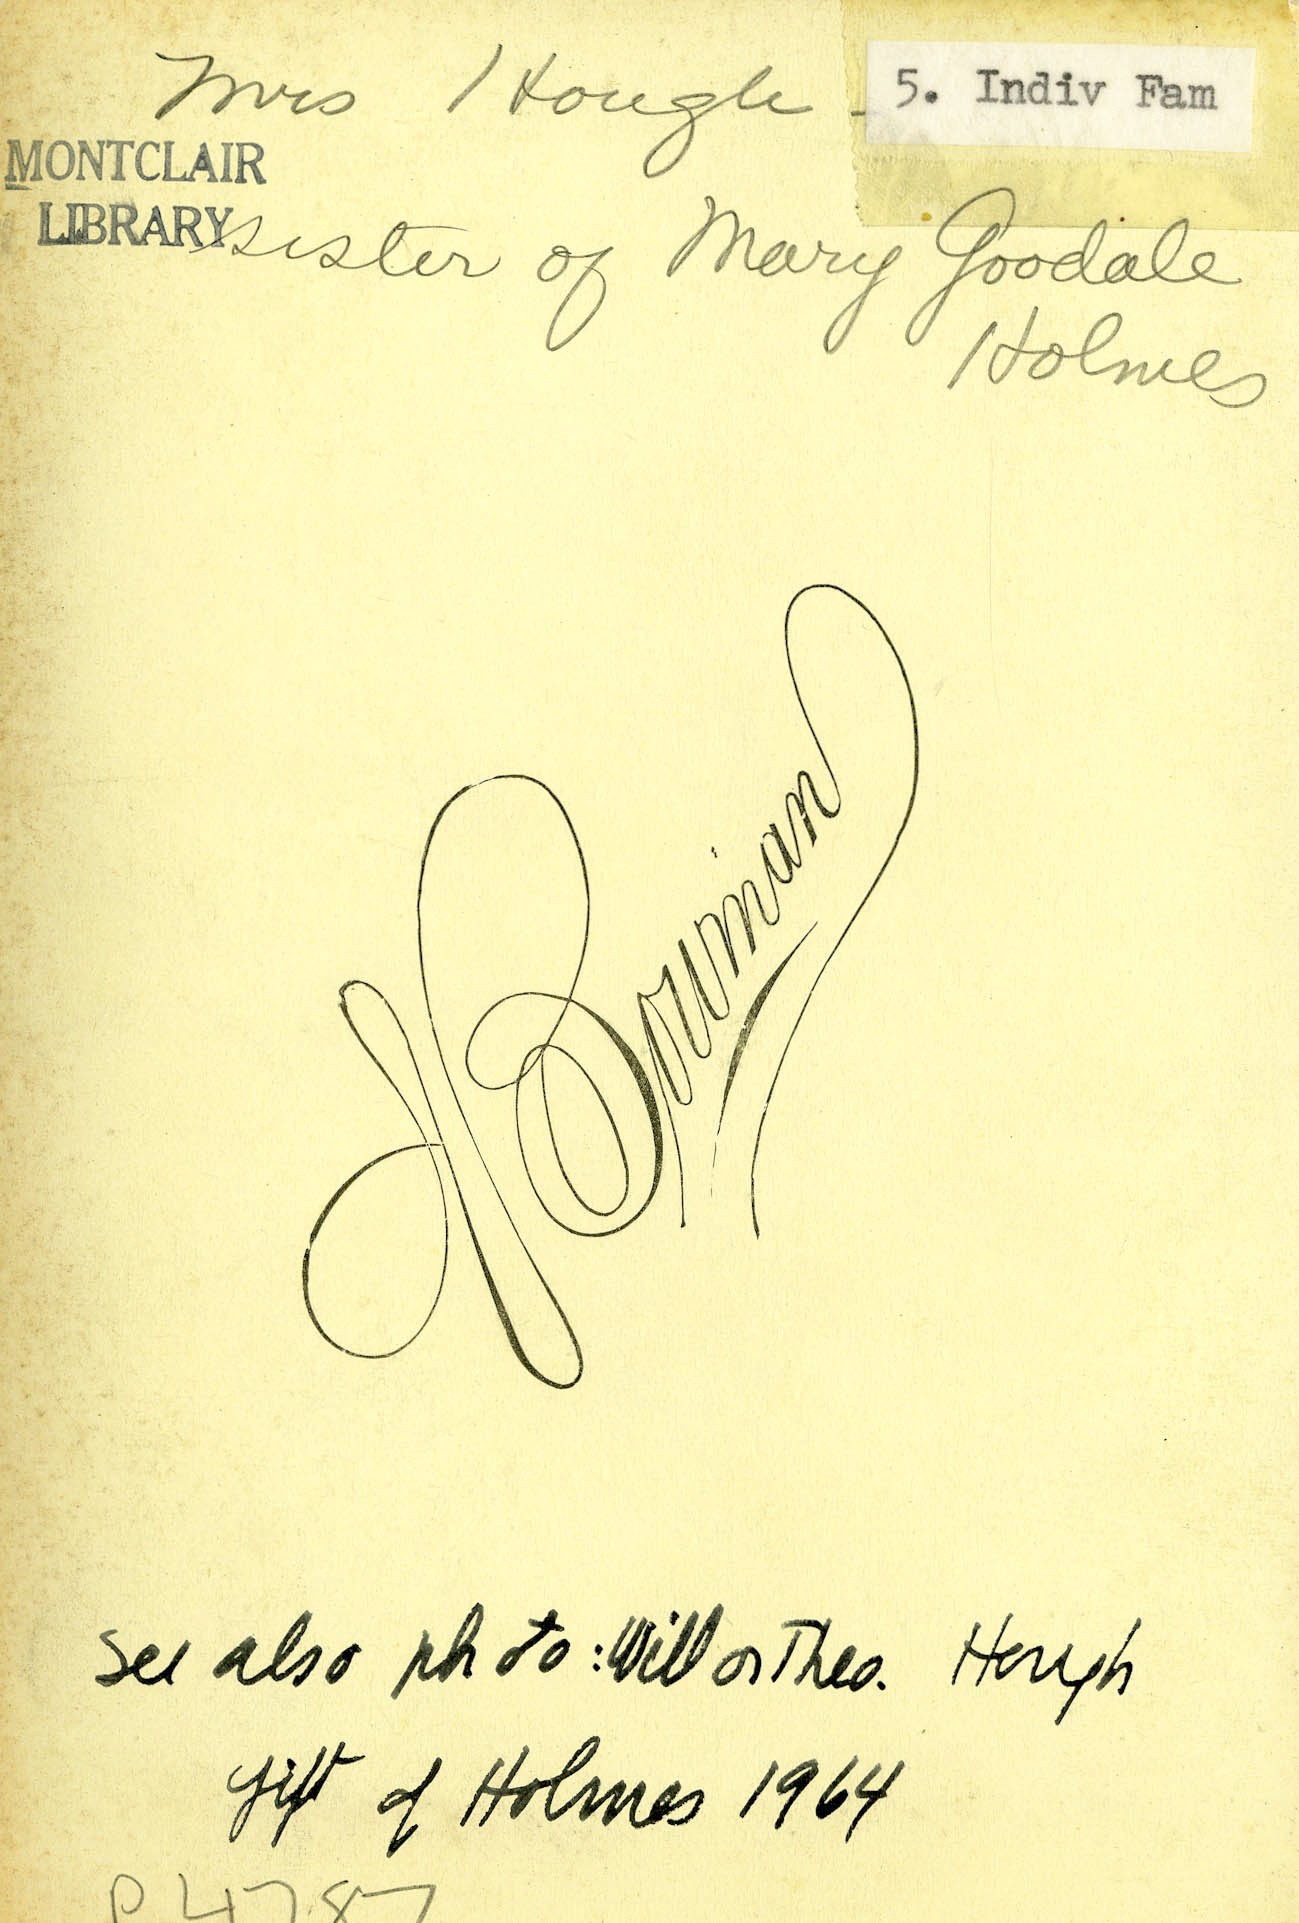 Mrs Hough -
5. Indiv Fam
MONTCLAIR
LIBRARY
sister of Mary Goodale
Holmes
Bowman
see also photo: Will or Theo. Hough
gift of Holmes 1964
P4787